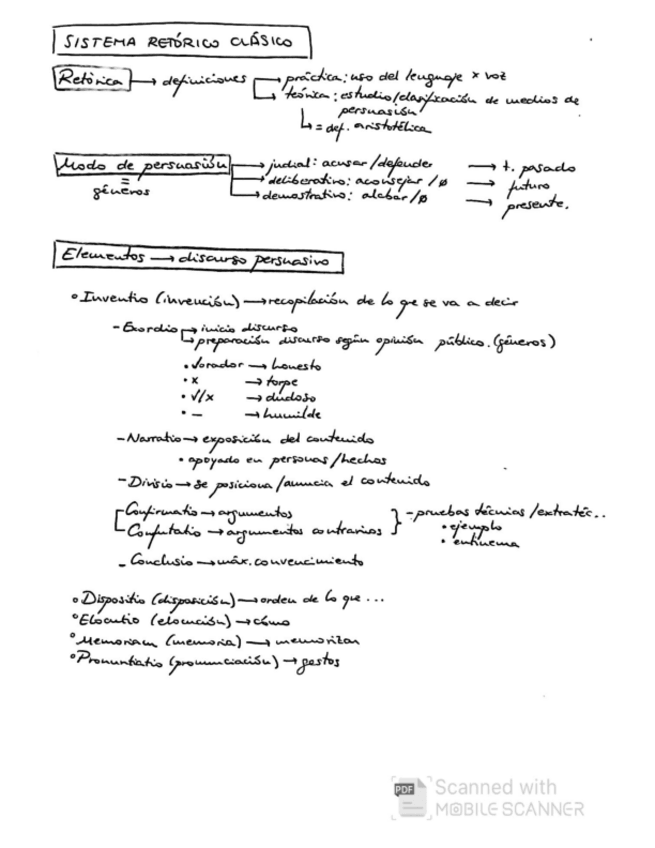 SISTEMA RETÓRICO CLÁSICO
Retórica → definiciones → práctica: uso del lenguaje x voz
→ teórica: estudio/clasificación de medios de
persuasión
↳ = def. aristotélica
Modo de persuasión → judial: acusar/defender → t. pasado
= → deliberativo: aconsejar/ø → futuro
géneros → demostrativo: alabar/ø → presente.
Elementos → discurso persuasivo
° Inventio (invención) → recopilación de lo qe se va a decir
- Exordio → inicio discurso
↳ preparación discurso según opinión público. (géneros)
• √orador → honesto
• x → torpe
• √/x → dudoso
• — → humilde
- Narratio → exposición del contenido
• apoyado en personas/hechos
- Divisio → se posiciona/anuncia el contenido
Confirmatio → argumentos } - pruebas técnias/extratéc..
Confutatio → argumentos contrarios • ejemplo
• entinema
- Conclusio → máx. convencimiento
° Dispositio (disposición) → orden de lo que ...
° Elocutio (elocución) → cómo
° Memoriam (memoria) → memorizar
° Pronuntiatio (pronunciación) → gestos
PDF Scanned with
MOBILE SCANNER